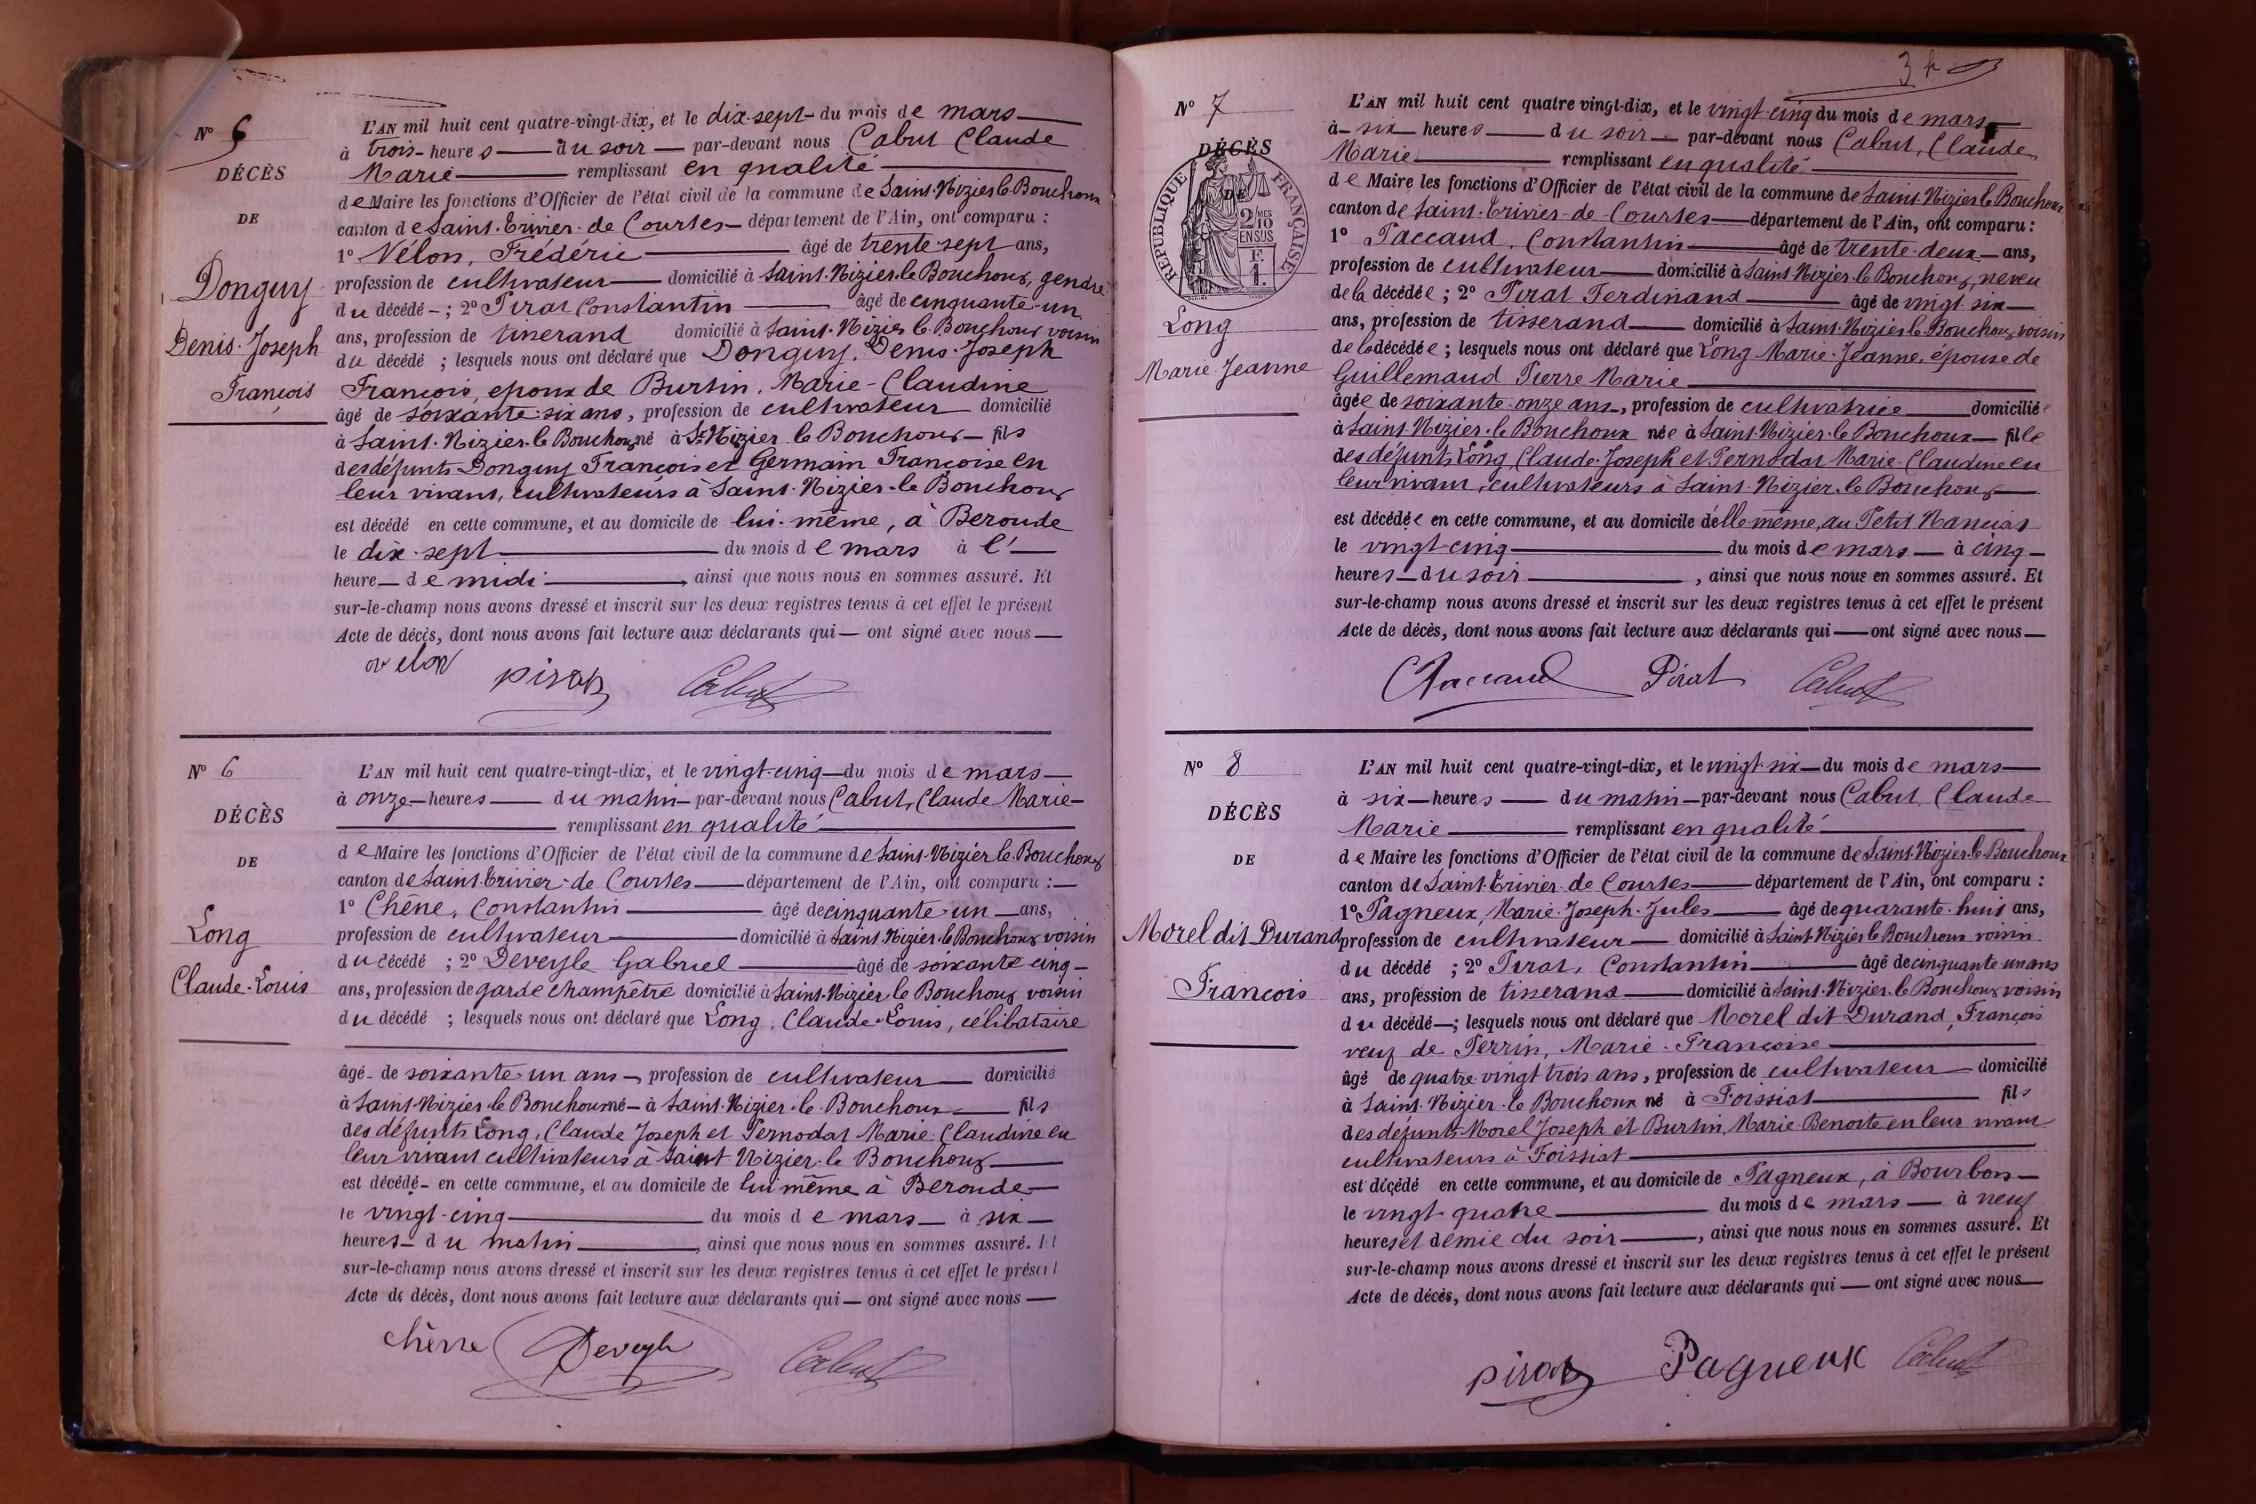 N° 5
DÉCÈS
DE
Donguy
Denis-Joseph
François
L'AN mil huit cent quatre-vingt-dix, et le dix-sept du mois de mars
à trois heures du soir par-devant nous Cabut Claude
Marie remplissant en qualité
de Maire les fonctions d'Officier de l'état civil de la commune de Saint-Nizier-le-Bouchoux
canton de Saint-Trivier-de-Courtes département de l'Ain, ont comparu :
1° Vélon, Frédéric âgé de trente-sept ans,
profession de cultivateur domicilié à Saint-Nizier-le-Bouchoux, gendre
du décédé ; 2° Pirat Constantin âgé de cinquante-un
ans, profession de tisserand domicilié à Saint-Nizier-le-Bouchoux voisin
du décédé ; lesquels nous ont déclaré que Donguy, Denis-Joseph
François, époux de Burtin, Marie-Claudine
âgé de soixante-six ans, profession de cultivateur domicilié
à Saint-Nizier-le-Bouchoux né à St Nizier le Bouchoux fils
des défunts Donguy François et Germain Françoise en
leur vivant, cultivateurs à Saint-Nizier-le-Bouchoux
est décédé en cette commune, et au domicile de lui-même, à Beroude
le dix-sept du mois de mars à l'
heure de midi, ainsi que nous nous en sommes assuré. Et
sur-le-champ nous avons dressé et inscrit sur les deux registres tenus à cet effet le présent
Acte de décès, dont nous avons fait lecture aux déclarants qui ont signé avec nous
velon pirat Cabut
N° 6
DÉCÈS
DE
Long
Claude-Louis
L'AN mil huit cent quatre-vingt-dix, et le vingt-cinq du mois de mars
à onze heures du matin par-devant nous Cabut, Claude Marie
remplissant en qualité
de Maire les fonctions d'Officier de l'état civil de la commune de Saint-Nizier-le-Bouchoux
canton de Saint-Trivier-de-Courtes département de l'Ain, ont comparu :
1° Chêne, Constantin âgé de cinquante-un ans,
profession de cultivateur domicilié à Saint-Nizier-le-Bouchoux voisin
du décédé ; 2° Deveyle Gabriel âgé de soixante cinq
ans, profession de garde champêtre domicilié à Saint-Nizier-le-Bouchoux voisin
du décédé ; lesquels nous ont déclaré que Long, Claude-Louis, célibataire
âgé de soixante un ans, profession de cultivateur domicilié
à Saint-Nizier-le-Bouchoux né à Saint-Nizier-le-Bouchoux fils
des défunts Long, Claude Joseph et Pernodat Marie-Claudine en
leur vivant cultivateurs à Saint Nizier-le-Bouchoux
est décédé en cette commune, et au domicile de lui même à Beroude
le vingt-cinq du mois de mars à six
heures du matin, ainsi que nous nous en sommes assuré. Et
sur-le-champ nous avons dressé et inscrit sur les deux registres tenus à cet effet le présent
Acte de décès, dont nous avons fait lecture aux déclarants qui ont signé avec nous
chêne Deveyle Cabut
3
N° 7
DÉCÈS
DE
RÉPUBLIQUE FRANÇAISE
2/10 MES
EN SUS
F.
1.
Long
Marie-Jeanne
L'AN mil huit cent quatre vingt-dix, et le vingt-cinq du mois de mars
à six heures du soir par-devant nous Cabut, Claude
Marie remplissant en qualité
de Maire les fonctions d'Officier de l'état civil de la commune de Saint-Nizier-le-Bouchoux
canton de Saint-Trivier-de-Courtes département de l'Ain, ont comparu :
1° Paccaud, Constantin âgé de trente-deux ans,
profession de cultivateur domicilié à Saint-Nizier-le-Bouchoux, neveu
de la décédée ; 2° Pirat Ferdinand âgé de vingt-six
ans, profession de tisserand domicilié à Saint-Nizier-le-Bouchoux voisin
de la décédée ; lesquels nous ont déclaré que Long Marie-Jeanne, épouse de
Guillemaud Pierre Marie
âgée de soixante-onze ans, profession de cultivatrice domiciliée
à Saint-Nizier-le-Bouchoux née à Saint-Nizier-le-Bouchoux fille
des défunts Long, Claude-Joseph et Pernodat Marie-Claudine en
leur vivant, cultivateurs à Saint-Nizier-le-Bouchoux
est décédée en cette commune, et au domicile d'elle même, au Petit Nanciat
le vingt-cinq du mois de mars à cinq
heures du soir, ainsi que nous nous en sommes assuré. Et
sur-le-champ nous avons dressé et inscrit sur les deux registres tenus à cet effet le présent
Acte de décès, dont nous avons fait lecture aux déclarants qui ont signé avec nous
Paccaud Pirat Cabut
N° 8
DÉCÈS
DE
Morel dit Durand
François
L'AN mil huit cent quatre-vingt-dix, et le vingt-six du mois de mars
à six heures du matin par-devant nous Cabut, Claude
Marie remplissant en qualité
de Maire les fonctions d'Officier de l'état civil de la commune de Saint-Nizier-le-Bouchoux
canton de Saint-Trivier-de-Courtes département de l'Ain, ont comparu :
1° Pagneux, Marie-Joseph-Jules âgé de quarante-huit ans,
profession de cultivateur domicilié à Saint-Nizier le Bouchoux voisin
du décédé ; 2° Pirat, Constantin âgé de cinquante un ans
ans, profession de tisserand domicilié à Saint-Nizier-le-Bouchoux voisin
du décédé ; lesquels nous ont déclaré que Morel dit Durand, François
veuf de Perrin, Marie-Françoise
âgé de quatre vingt trois ans, profession de cultivateur domicilié
à Saint-Nizier-le-Bouchoux né à Foissiat fils
des défunts Morel Joseph et Burtin, Marie-Benoite en leur vivant
cultivateurs à Foissiat
est décédé en cette commune, et au domicile de Pagneux, à Bourbon
le vingt-quatre du mois de mars à neuf
heures et demie du soir, ainsi que nous nous en sommes assuré. Et
sur-le-champ nous avons dressé et inscrit sur les deux registres tenus à cet effet le présent
Acte de décès, dont nous avons fait lecture aux déclarants qui ont signé avec nous
pirat Pagneux Cabut